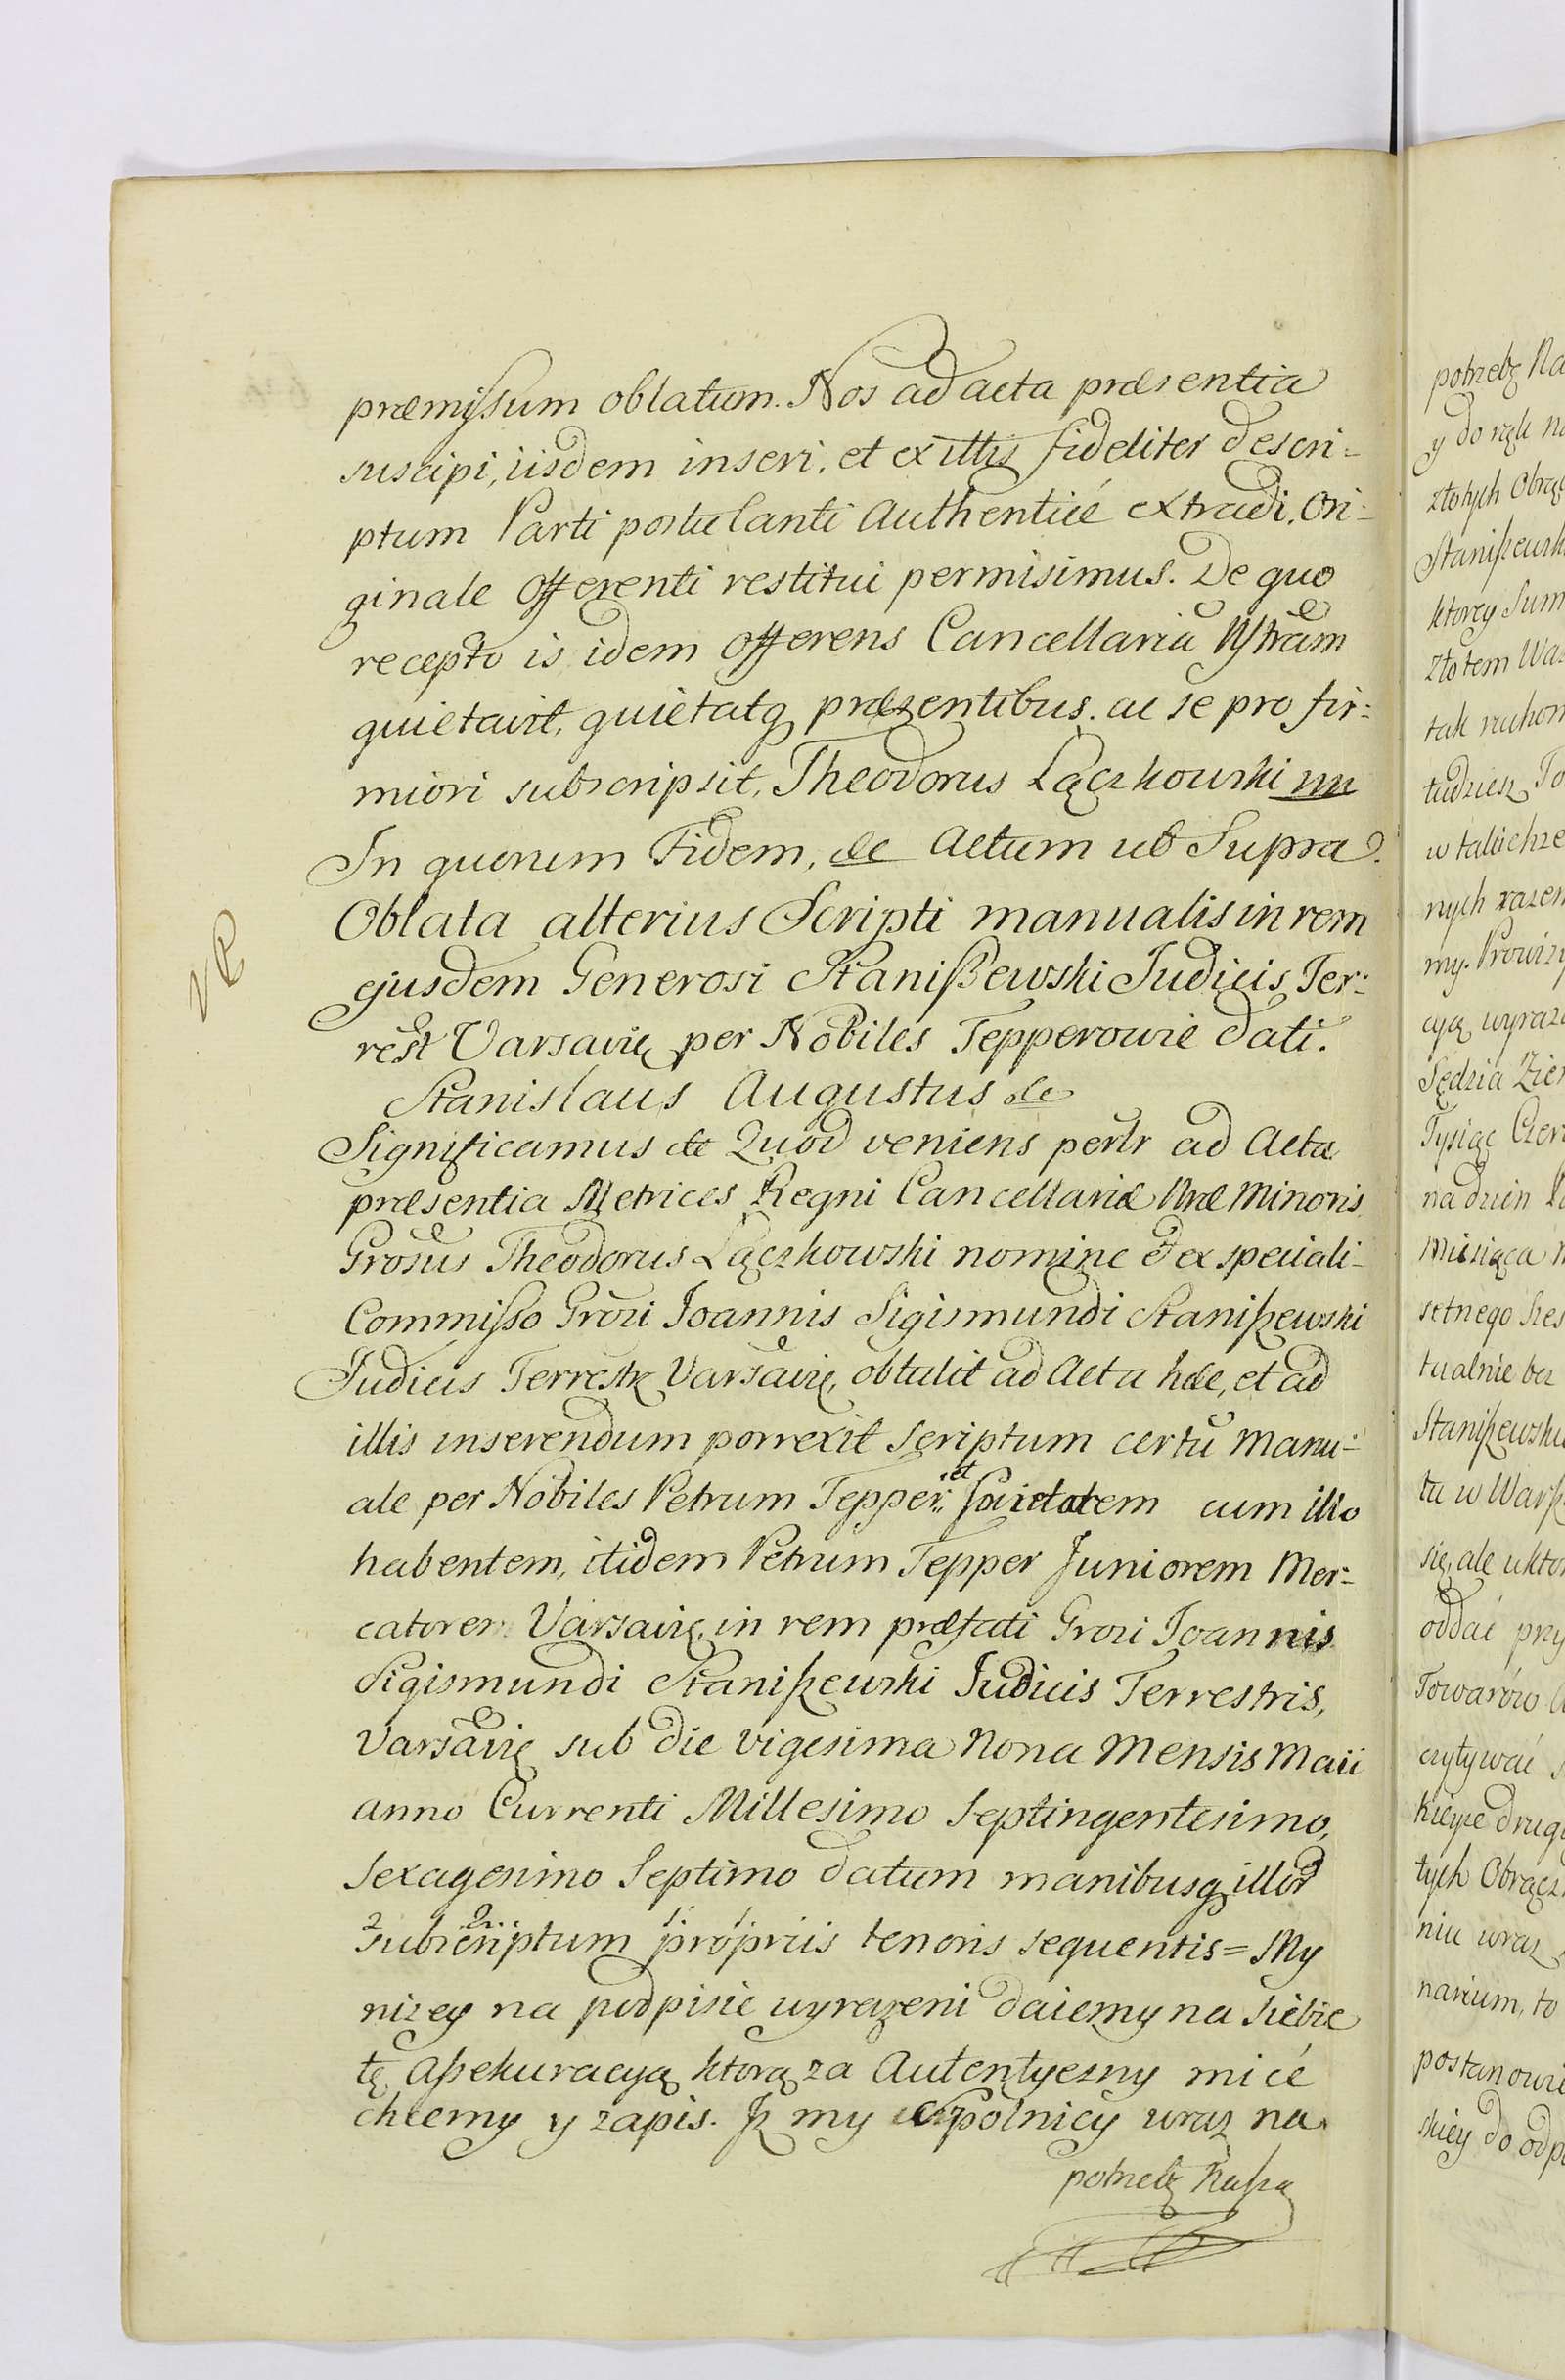 præmissum oblatum. Nos ad acta præsentia
suscipi, iisdem inseri, et ex illis fideliter descri=
ptum Parti postulanti Authenticé extradi, Ori=
ginale Offerenti restitui permisimus. De quo
recepto is idem Offerens Cancellariã Nstram
quietavit, quietatq præsentibus. ac se pro fir=
miori subscripsit, Theodorus Łączkowski mp
In quorum Fidem, &c Actum ut Supra.
VR
Oblata alterius Scripti manualis in rem
ejusdem Generosi Staniszewski Judicis Ter=
rest Varsavię per Nobiles Tepperowie dati.
Stanislaus Augustus &c
Significamus &c Quod veniens perlr ad Acta
præsentia Metrices Regni Cancellariæ Nræ Minoris
Grosus Theodorus Łączkowski nomine et ex speciali
Commisso Grosi Joannis Sigismundi Staniszewski
Judicis Terrestr Varsavię, obtulit ad Acta hæc, et ad
illis inserendum porrexit Scriptum certũ manu=
ale per Nobiles Petrum Tepper et Societatem cum illo
habentem, itidem Petrum Tepper Juniorem Mer=
catorem Varsavię, in rem præfati Grosi Joannis
Sigismundi Staniszewski Judicis Terrestris,
Varsavię sub die vigesima Nona Mensis Maii
anno Currenti Millesimo Septingentesimo,
Sexagesimo Septimo datum manibusq illor
subscriptum propriis tenoris sequentis = My
nizey na podpisie wyrazeni daiemy na siebie
tę Assekuracyą ktorą za Autentyczny mieć
chcemy y zapis. Jz my wspolnicy wraz na
potrzebę Naszą
potrzebę Na
y do rąk
złotych Obrą
Staniszewsk
ktorey Sum
złotem Wa
tak ruchom
tudziesz To
nych razem
my. Prowizy
cyą wyraz
Sędzia Zie
Tysiąc Czer
na dzien
Miesiąca
setnego szes
tualnie bez
Staniszewski
tu w Warsz
się, ale
oddać przy
Towarów
czytywać
tych Obrącz
niu wraz
narium, to
postanowie
skiey do odp